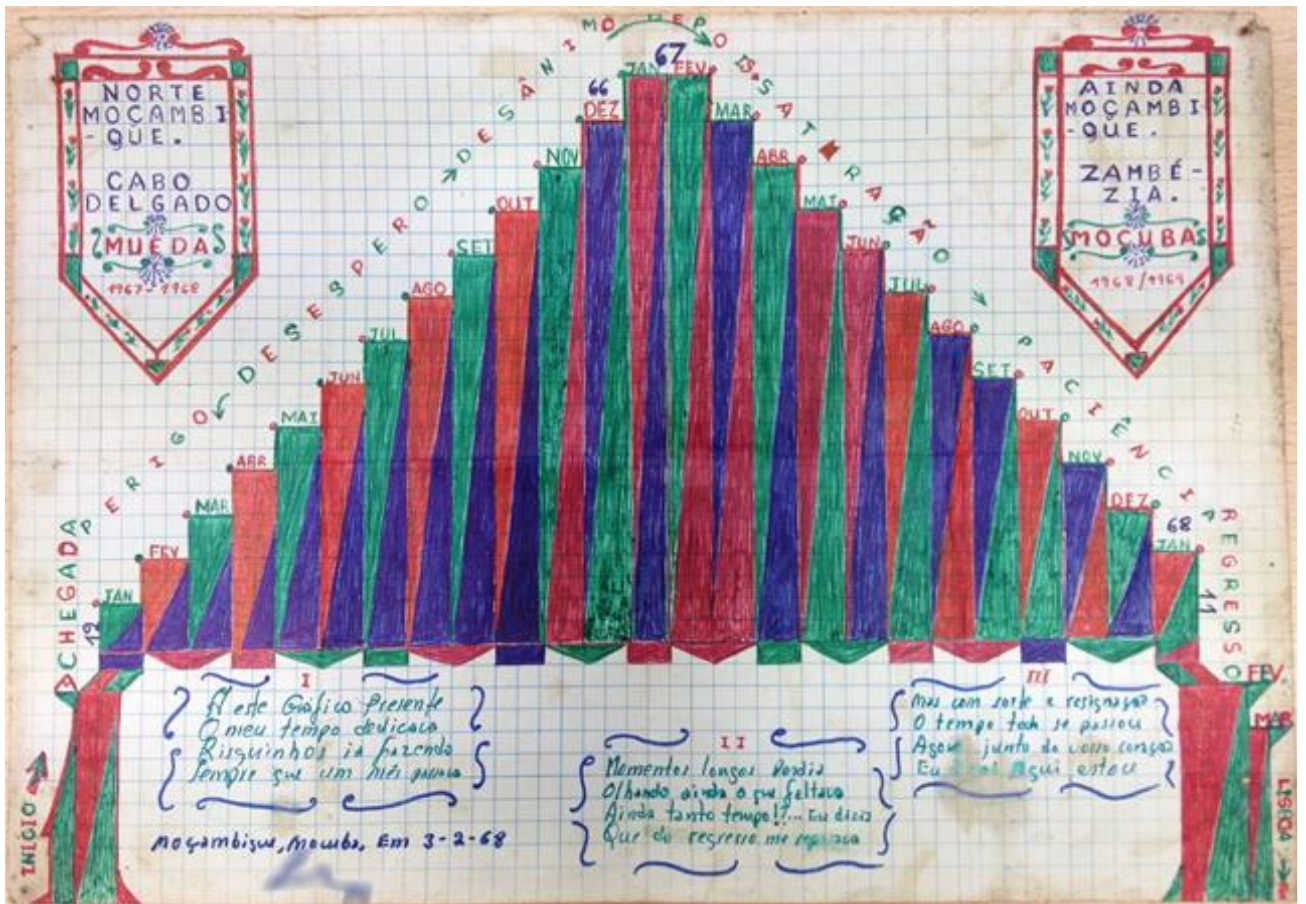 NORTE
MOÇAMBI
-QUE.
CABO
DELGADO
MUEDA
1967-1968
AINDA
MOÇAMBI
-QUE.
ZAMBÉ-
ZIA.
MOCUBA
1968/1969
A CHEGADA
PERIGO DESESPERO DESÂNIMO DEPOIS SATURAÇÃO PACIÊNCIA
REGRESSO
12
JAN
FEV
MAR
ABR
MAI
JUN
JUL
AGO
SET
OUT
NOV
66
DEZ
67
JAN
FEV
MAR
ABR
MAI
JUN
JUL
AGO
SET
OUT
NOV
DEZ
68
JAN
11
FEV.
MAR
INICIO
LISBOA
I
A este Gráfico Presente
O meu tempo dedicava
Risquinhos ia fazendo
Sempre que um mês passava
II
Momentos longos Perdia
Olhando ainda o que faltava
Ainda tanto tempo!?... Eu dizia
Que do regresso me separava
III
Mas com sorte e resignação
O tempo se passou
Agora junto do vosso coração
Eu aqui estou
Moçambique, Mocuba, Em 3-2-68